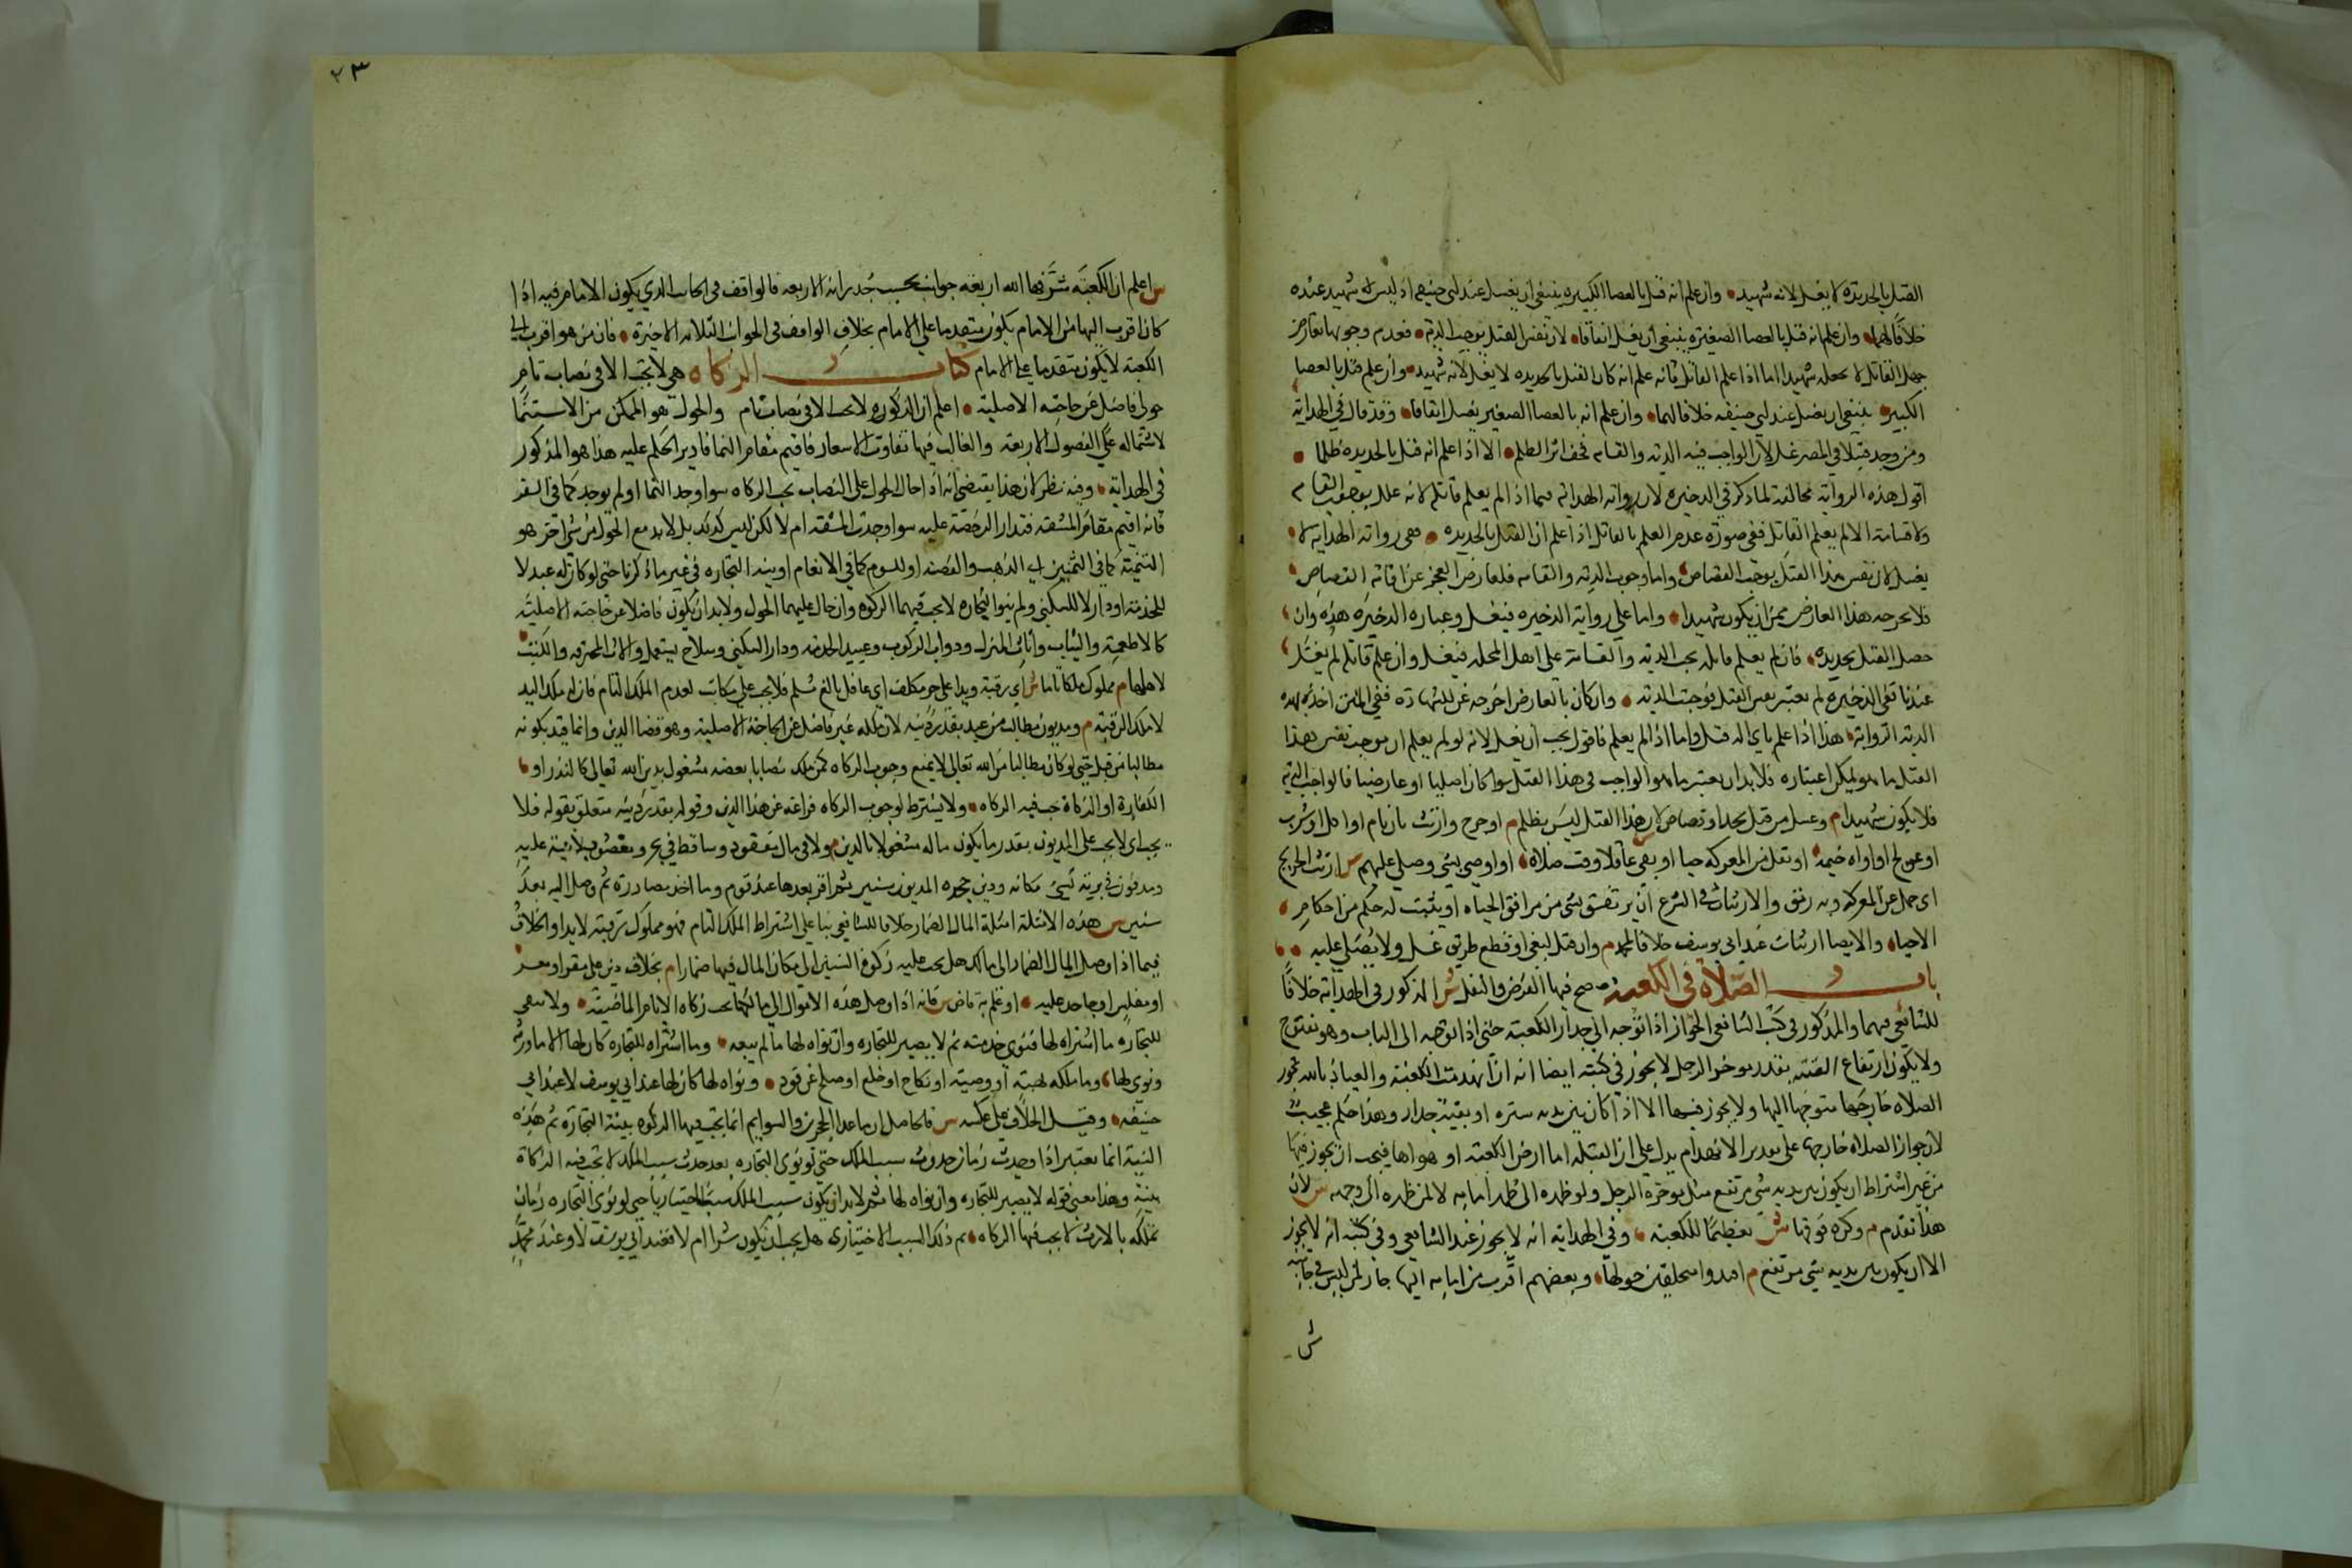 القتل بالحديدة لا يغسل لانه شهيد وان علم انه قتل بالعصا الكبيرة ينبغي ان يغسل عند ابي حنيفة اذ ليس له شهيد عنده
خلافا لهما وان علم انه قتل بالعصا الصغيرة ينبغي ان يغسل اتفاقا لان نفس القتل يوجب الدية فعدم وجوبها بعارض
جهل القاتل لا يجعله شهيدا اما اذا علم القاتل فانه علم انه كان القتل بالحديدة لا يغسل لانه شهيد وان علم قتل بالعصا
الكبير ينبغي ان يغسل عند ابي حنيفه خلافا لهما وان علم انه بالعصا الصغير يغسل اتفاقا وقد قال في الهداية
ومن وجد قتيلا في المصر غسل لان الواجب فيه الدية والقسامة فخف اثر الظلم الا اذا علم انه قتل بالحديدة ظلما
اقول هذه الرواية مخالفة لما ذكر في الذخيرة لان رواية الهداية فيما اذا لم يعلم قاتله لانه علل بوجوب القسامة
ولا قسامة الا لم يعلم القاتل ففي صورة عدم العلم بالقاتل اذا علم ان القتل بالحديدة ففي رواية الهداية لا
يغسل لان نفس هذا القتل يوجب القصاص واما وجوب الدية والقسامة فلعارض العجز عن اقامة القصاص
فلا يخرجه هذا العارض عن ان يكون شهيدا واما على رواية الذخيرة فيغسل وعبارة الذخيرة هذه وان
حصل القتل بحديدة فان لم يعلم قاتله تجب الدية والقسامة على اهل المحلة فيغسل وان علم قاتله لم يغسل
عندنا ففي الذخيرة لم يعتبر نفس القتل فوجبت الدية وان كان بالعارض اخرجه عن الشهادة ففي المتن اخذ بهذه
الرواية هذا اذا علم باي آلة قتل واما اذا لم يعلم فاقول يجب ان يغسل لانه لو لم يعلم ان موجب نفس هذا
القتل ما هو لم يكن اعتباره فلا بد ان يعتبر ما هو الواجب في هذا القتل سوا كان اصليا او عارضيا فالواجب الدية
فلا يكون شهيدا م وغسل من قتل بحد او قصاص لان هذا القتل ليس بظلم م او جرح وارتث بان نام او اكل او شرب
او عولج او اواه خيمة او نقل من المعركة حيا او بقي عاقلا وقت صلاة او اوصي بشي وصلي عليهم س ارتث الجريح
اي حمل عن المعركة وبه رمق والارتثاث في الشرع ان يرتفق بشي من مرافق الحياة او يثبت له حكم من احكام
الاحياء والايصا ارتثاث عند ابي يوسف خلافا لمحمد م وان قتل لبغي او قطع طريق غسل ولا يصلي عليه
باب الصلاة في الكعبة م صح فيها الفرض والنفل ش المذكور في الهداية خلافا
للشافعي فيهما والمذكور في كتب الشافعي الجواز اذا توجه الي جدار الكعبة حتى اذا توجه الى الباب وهو مفتوح
ولا يكون ارتفاع العتبة بقدر موخر الرحل لا يجوز في كتبه ايضا انه ان انهدمت الكعبة والعياذ بالله تجوز
الصلاة خارجها متوجها اليها ولا يجوز فيها الا اذا كان بين يديه سترة او بقية جدار وهذا حكم عجيب
لان جواز الصلاة خارجها على تقدير الانهدام يدل على ان القبلة اما ارض الكعبة او هواها فيجب ان يجوز فيها
من غير اشتراط ان يكون بين يديه شي مرتفع مثل موخرة الرحل ولو ظهره الى ظهر امامه لا لمن ظهره الى وجهه س لان
هذا تقدم م وكره فوقها ش تعظيما للكعبة وفي الهداية انه لا يجوز عند الشافعي وفي كتبه انه لا يجوز
الا ان يكون بين يديه شي مرتفع م اقتدوا متحلقين حولها وبعضهم اقرب من امامه اليها جاز لمن ليس في جانبه
ش
٢٣
س اعلم ان للكعبة شرفها الله اربعة جوانب بحسب جدرانه الاربعة فالواقف في الجانب الذي يكون الامام فيه اذا
كان اقرب اليها من الامام يكون متقدما على الامام بخلاف الواقف في الجوانب الثلاثة الاخيرة فان من هو اقرب الي
الكعبة لا يكون متقدما على الامام كتاب الزكاه هي لا تجب الا في نصاب تام
حولي فاضل عن حاجته الاصلية اعلم ان الزكوة لا تجب الا في نصاب تام والحول هو الممكن من الاستنما
لاشتماله على الفصول الاربعة والغالب فيها تفاوت الاسعار فاقيم مقام النما فادير الحكم عليه هذا هو المذكور
في الهداية وفيه نظر لان هذا يقتضي انه اذا حال الحول على النصاب تجب الزكاه سوا وجد النما او لم يوجد كما في السفر
فانه اقيم مقام المشقة فتدار الرخصة عليه سوا وجدت المشقة ام لا لكن ليس كذلك بل لا بد مع الحول من شي اخر هو
الثمنية كما في الثمنين اي الذهب والفضة او السوم كما في الانعام او نية التجارة في غير ما ذكرنا حتي لو كان له عبد لا
للخدمة او دار لا للسكني ولم ينو التجارة لا تجب فيهما الزكوة وان حال عليهما الحول ولا بد ان يكون فاضلا عن حاجته الاصلية
كالاطعمة والثياب واثاث المنزل ودواب الركوب وعبيد الخدمة ودار السكني وسلاح يستعمل والات المحترفة والكتب
لاهلها م مملوك ملكا تاما ش اي رقبة ويدا على حر مكلف اي عاقل بالغ مسلم فلا يجب على مكاتب لعدم الملك التام فان له ملك اليد
لا ملك الرقبة م ومديون مطالب من عبد بقدر دينه لان ملكه غير فاضل عن الحاجة الاصلية وهو قضا الدين وانما قيد بكونه
مطالبا من قبل حتي لو كان مطالبا من الله تعالي لا يمنع وجوب الزكاه كمن ملك نصابا بعضه مشغول بدين الله تعالي كالنذر او
الكفارة او الزكاة تجب فيه الزكاه ولا يشترط لوجوب الزكاه فراغه عن هذا الدين وقوله بقدر دينه متعلق بقوله فلا
يجب اي لا يجب على المديون بقدر ما يكون ماله مشغولا بالدين م ولا في مال مفقود وساقط في بحر ومغصوب لا بينة عليه
ومدفون في برية نسي مكانه ودين جحده المديون سنين ثم اقر بعدها عند قوم وما اخذ مصادرة ثم وصل اليه بعد
سنين س هذه الامثلة امثلة المال الضمار خلافا للشافعي بنا على اشتراط الملك التام فهو مملوك رقبة لا يدا والخلاف
فيما اذا وصل المال الضمار الى مالكه هل يجب عليه زكوة السنين التي كان المال فيها ضمارا م بخلاف دين على مقر او معسر
او مفلس او جاحد عليه او علم به قاض س فانه اذا وصل هذه الاموال الي مالكها تجب زكاه الايام الماضية ولا يبقي
للتجارة ما اشتراه لها فنوي خدمته ثم لا يصير للتجارة وان نواه لها ما لم يبعه وما اشتراه للتجارة كان لها الا ما ورثه
ونوي لها وما ملكه بهبة او وصية او نكاح او خلع او صلح عن قود ونواه لها كان لها عند ابي يوسف لا عند ابي
حنيفه وقيل الخلاف على عكسه س فالحاصل ان ما عدا الحجرين والسوايم انما تجب فيها الزكوة بنية التجارة ثم هذه
النية انما تعتبر اذا وجدت زمان حدوث سبب الملك حتي لو نوي التجارة بعد حدوث سبب الملك لا تجب فيه الزكاة
بنية وهذا معني قوله لا يصير للتجارة وان نواه لها ثم لا بد ان يكون سبب الملك سببا اختياريا حتي لو نوي التجارة زمان
تملكه بالارث لا تجب فيها الزكاه ثم ذلك السبب الاختياري هل يجب ان يكون شرا ام لا فعند ابي يوسف لا وعند محمد